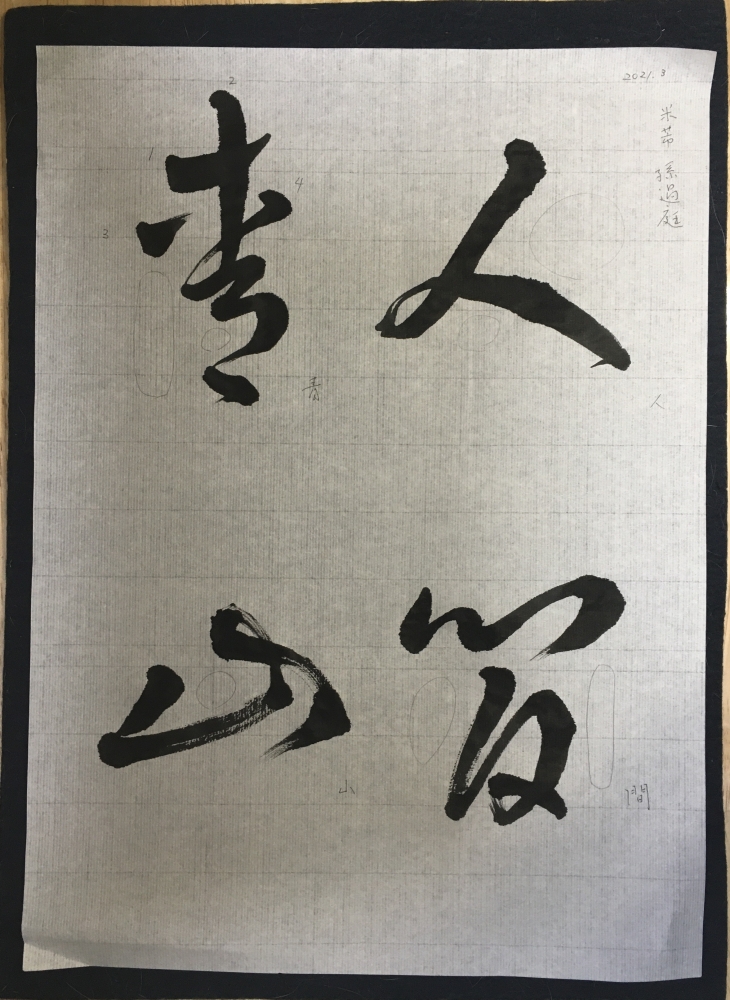 2021.3
米芾 孫過庭
人間
人
間
青山
1
2
3
4
青
山